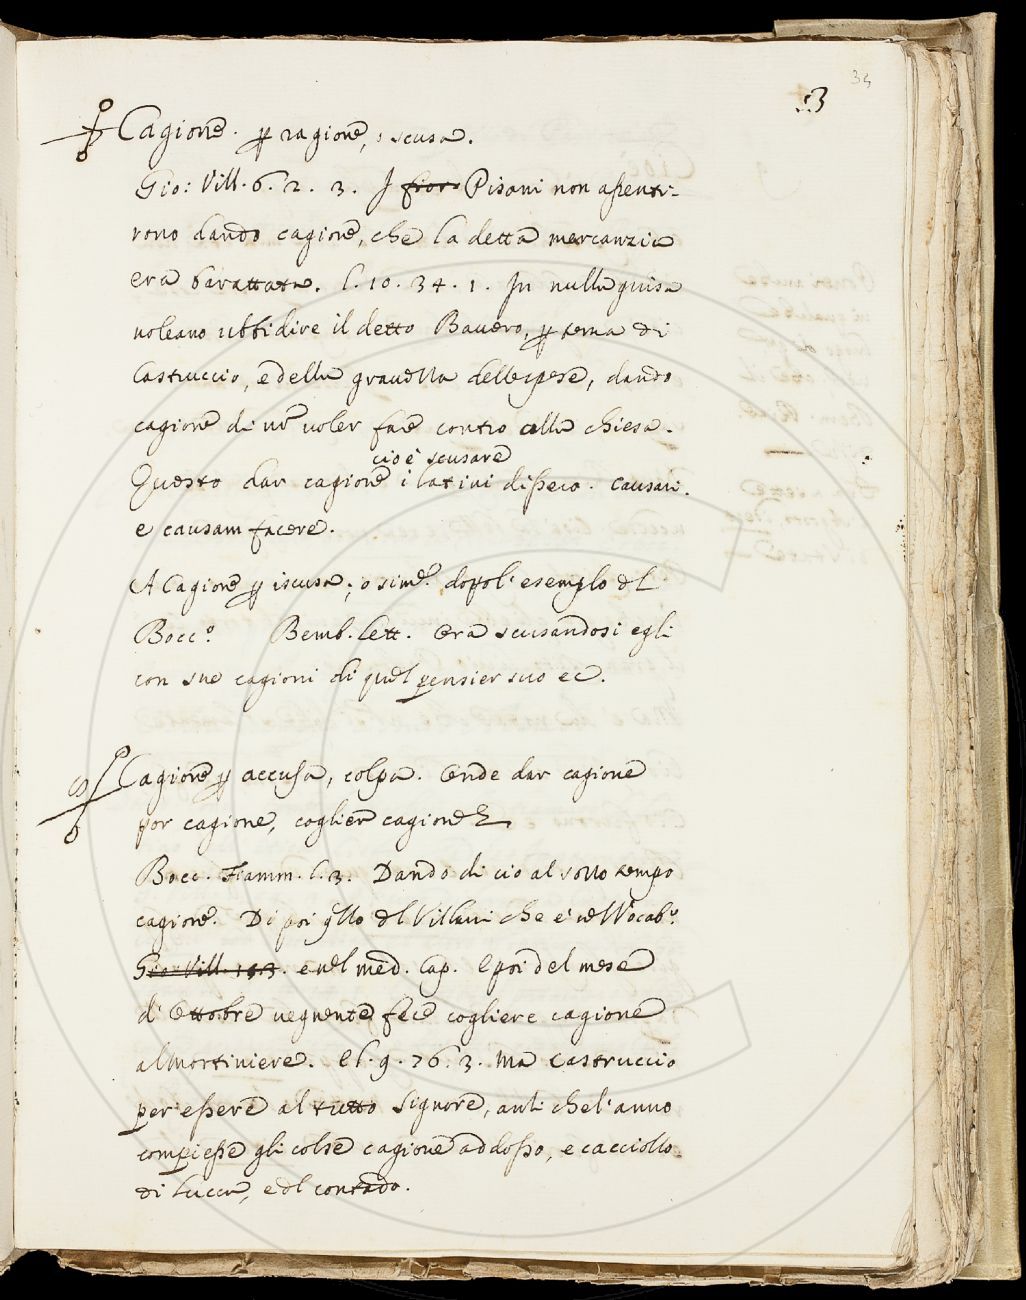 34
33
Cagione. ꝑ ragione, o scusa.
Gio: Vill. 6. 2. 3. I fior Pisani non assenti-
rono dando cagione, che la detta mercanzia
era barattata. l. 10. 34. 1. In nulla guisa
voleano ubbidire il detto Bavero, ꝑ tema di
Castruccio, e della gravezza delle spese, dando
cagione di nō voler fare contro alla chiesa.
cioè scusare
Questo dar cagione i latini dissero. causari.
e causam facere.
A Cagione ꝑ iscusa; o sime. dopo l'esempio del
Bocc.o Bemb. Lett. Ora scusandosi egli
con sue cagioni di quel pensier suo ec.
Cagione ꝑ accusa, colpa. Onde dar cagione
por cagione, coglier cagione
Bocc. Fiamm. l. 3. Dando di cio al sotto tempo
cagione. Di poi qllo del Villani che è nel Vocab.o
Gio: Vill. . e nel med. Cap. E poi del mese
di Ottobre vegnente fece cogliere cagione
al Mortiniere. E l. 9. 76. 3. Ma Castruccio
per essere al tutto Signore, anti che l'anno
compiesse gli colse cagione addosso, e cacciollo
di Lucca, e del contado.